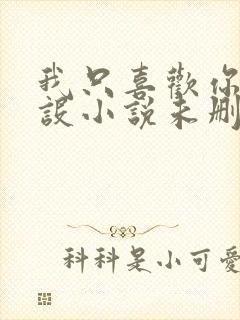 我只喜歡你
設小說未刪
科科是小可愛